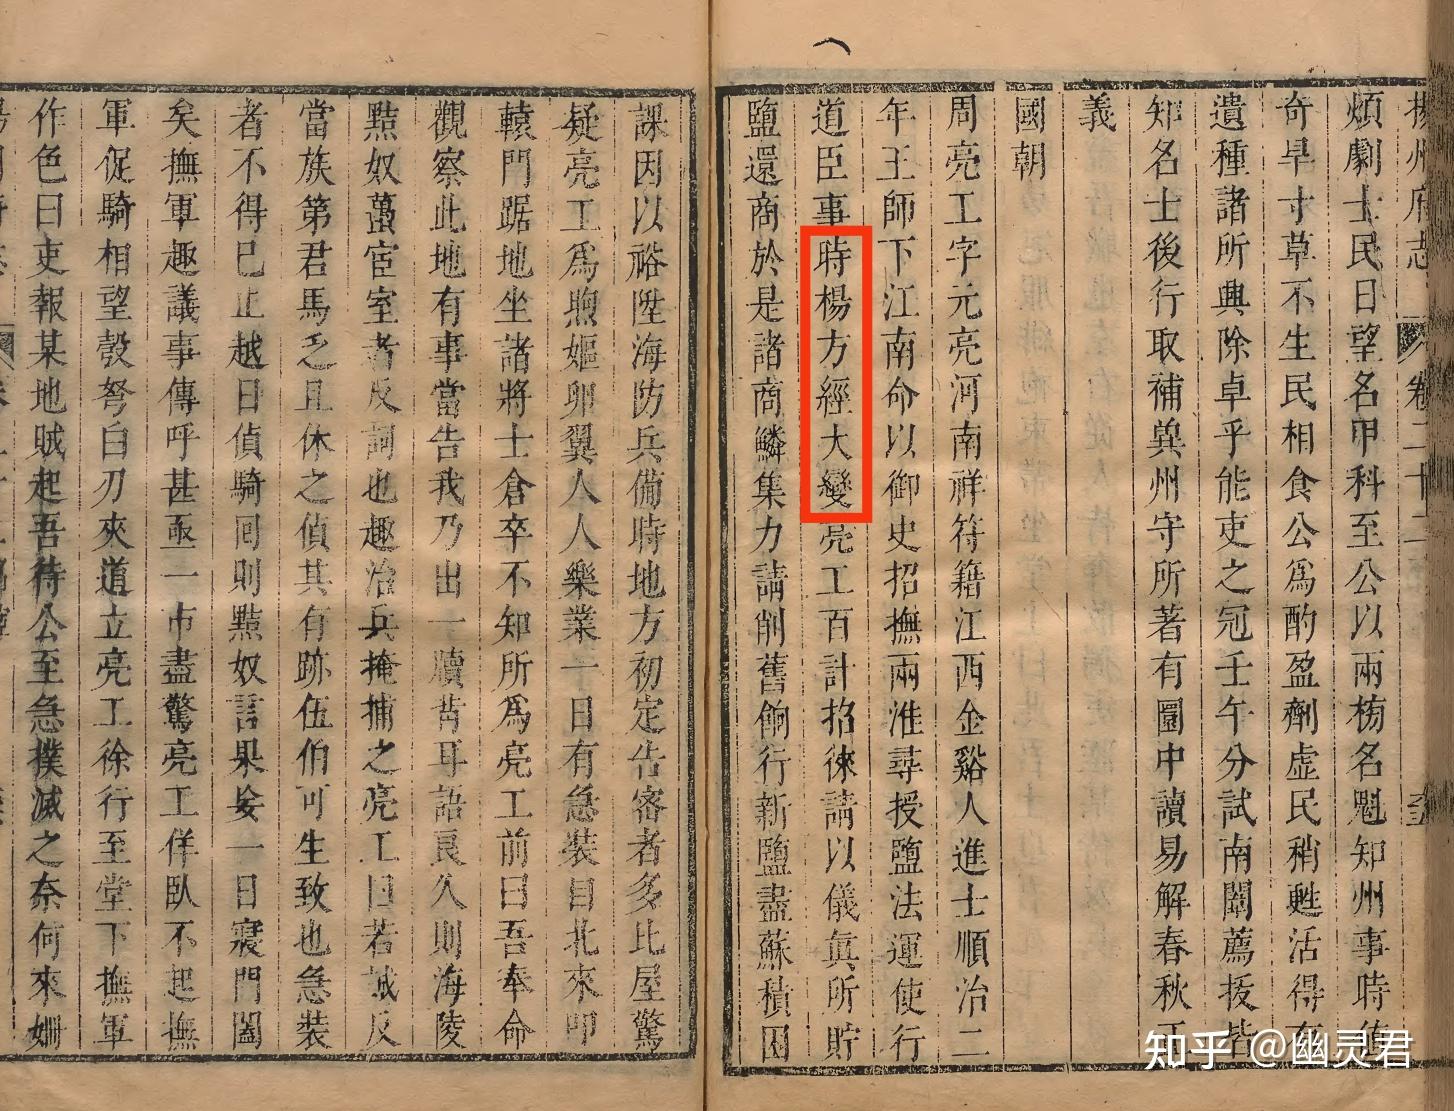 揚州府志 卷二十二
煩劇士民日望名甲科至公以兩榜名魁知州事時值
奇旱寸草不生民相食公為酌盈劑虛民稍甦活得
遺種諸所興除卓乎能吏之冠壬午分試南闈薦拔皆
知名士後行取補兾州守所著有圍中讀易解春秋正
義
國朝
周亮工字元亮河南祥符籍江西金谿人進士順治二
年王師下江南命以御史招撫兩淮尋授鹽法運使行
道臣事時楊方經大變亮工百計招徠請以儀眞所貯
鹽還商於是諸商鱗集力請削舊餉行新鹽盡蘇積因
課因以裕陞海防兵備時地方初定告密者多比屋驚
疑亮工為煦嫗卵翼人人樂業一日有急裝自北來叩
轅門踞地坐諸將士倉卒不知所為亮工前曰吾奉命
觀察此地有事當告我乃出一牘背耳語良久則海陵
㸃奴蠆宦室者反詞也趣治兵掩捕之亮工曰若誠反
當族第君馬乏且休之偵其有跡伍伯可生致也急裝
者不得已止越日偵騎囘則㸃奴言果妄一日寢門闔
矣撫軍趣議事傳呼甚亟一市盡驚亮工佯臥不起撫
軍促騎相望彀弩白刃夾道立亮工徐行至堂下撫軍
作色曰吏報某地賊起吾待公至急撲滅之奈何來姍
知乎 @幽灵君